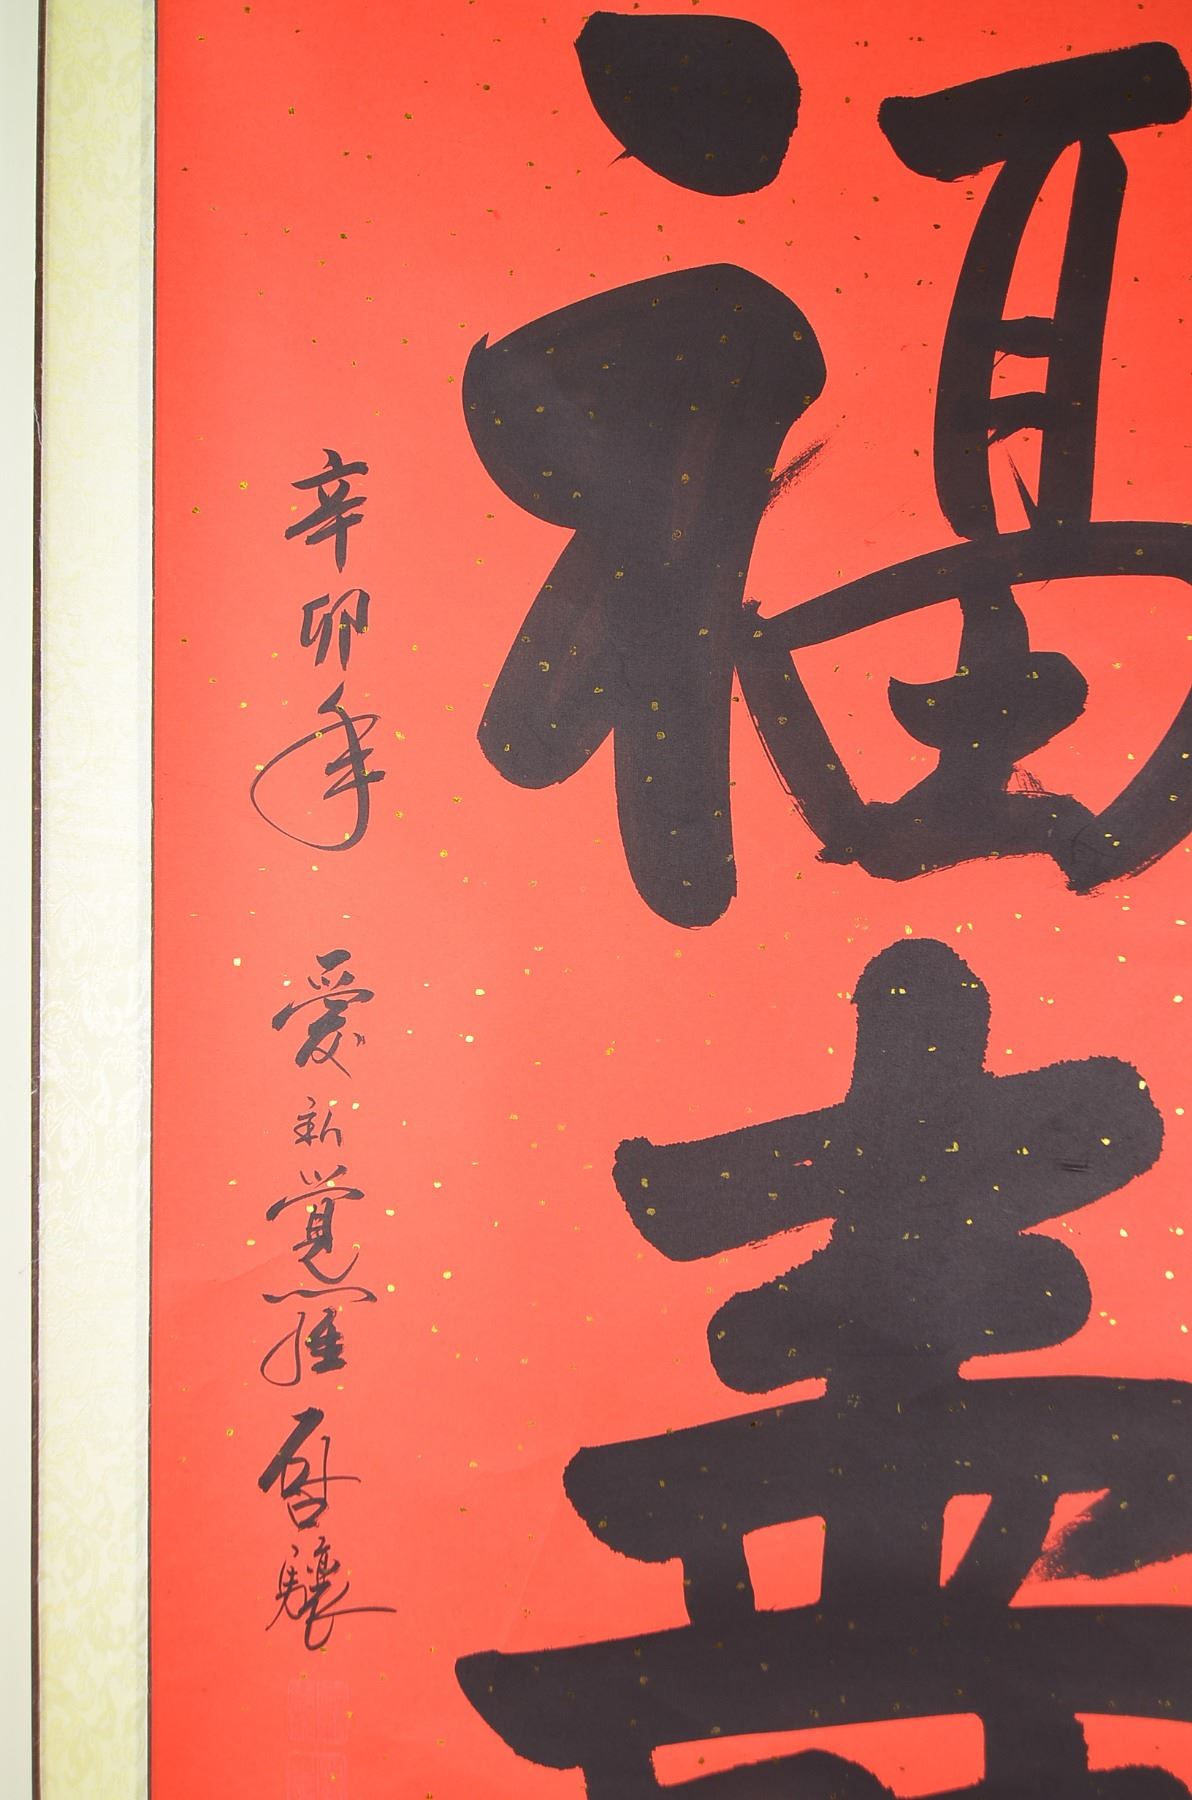 福壽
辛卯年 愛新覺羅啓驤